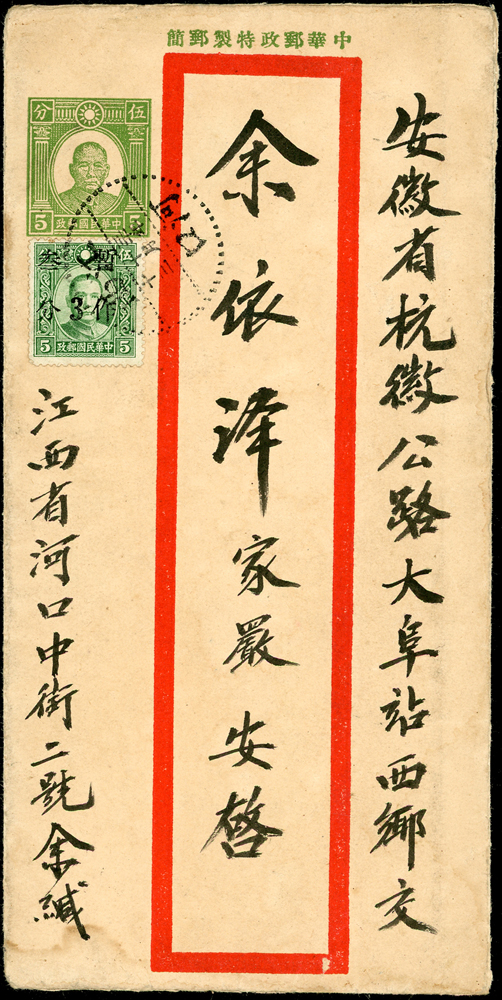 中華郵政特製郵簡
安徽省杭徽公路大阜站西鄉交
余依澤家嚴安啓
江西省河口中街二號余緘
伍分
5 中華民國郵政 5
伍
暫作叁分
3
5 中華民國郵政 5
河口